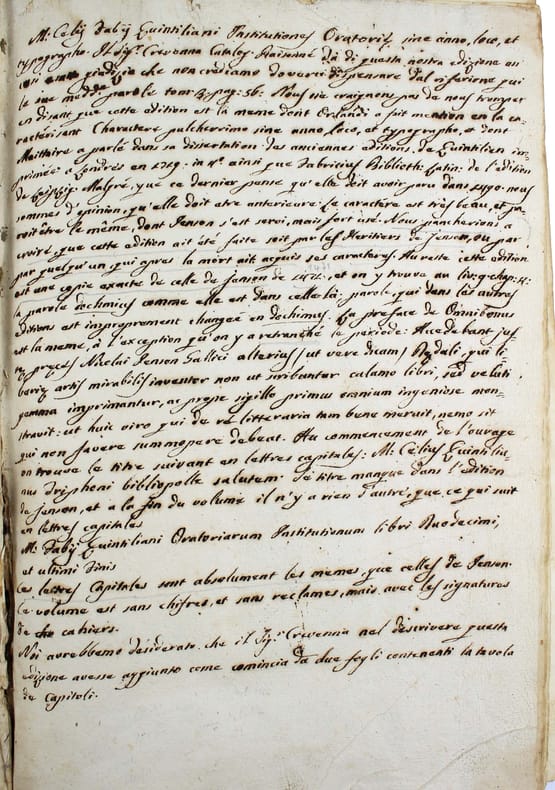 M. Celij Fabij Quintiliani Institutiones Oratoriæ sine anno, loco, et
typographo. Il Sig.r Crevenna Catalog. Raisonné dà di questa nostra edizione un
giudizio che non crediamo doverci dispensare dal riferirne qui
le sue med.me parole tom. 3. pag. 56: Nous ne craignons pas de nous tromper
en disant que cette edition est la meme dont Orlandi a fait mention en la ca-
racterisant Charactere pulcherrimo sine anno, loco, et typographo, et dont
Maittaire a parlé dans sa dissertation des anciennes editions de Quintilien im-
primée à Londres en 1719. in 4.° ainsi que Fabricius Biblioth. Latin: de l'edition
de Malgré, que ce dernier pense qu'elle doit avoir paru dans 1490. nous
sommes d'opinion, qu'elle doit etre anterieure: le caractere est tres beau, et pa-
roit être le même, dont Jenson s'est servi, mais fort usé. Nous pancherions à
croire, que cette edition ait été faite soit par les Heritiers de Jenson, ou par
par quelqu'un qui apres la mort ait acquis ses caracteres. Au reste cette edition
est une copie exacte de celle de Jenson de 1471, et on y trouve au liv. 9. chap. 4:
la parole dochmicus comme elle est dans celle là, parole qui dans les autres
editions est improprement changée en dochimus. La preface de Omnibonus
est la meme, à l'exception qu'on y a retranché le periode: Accedebant jus-
tæ preces Nicolai Jenson Gallici alterius (ut vere dicam) Dedali, qui li-
brariæ artis mirabilis inventor non ut scribantur calamo libri, sed veluti
gemma imprimantur, ac prope sigillo primus omnium ingeniose mon-
stravit. ut huic viro qui de re litteraria tam bene meruit, nemo sit
qui non favere summopere debeat. Au commencement de l'ouvrage
on trouve le titre suivant en lettres capitales: M. Celius Quintilia-
nus Triphoni bibliopole salutem. Le titre manque dans l'edition
de Jenson, et a la fin du volume il n'y a rien d'autre, que ce qui suit
en lettres capitales
M. Fabij Quintiliani Oratoriarum Institutionum libri Duodecimi,
et ultimi Finis
Ces lettres Capitales sont absolument les memes, que celles de Jenson.
Ce volume est sans chifres, et sans reclames, mais avec les signatures
de cahiers.
Noi avrebbemo desiderato che il Sig.r Crevenna nel descrivere questa
edizione avesse aggiunto come comincia da due fogli contenenti la tavola
de Capitoli.